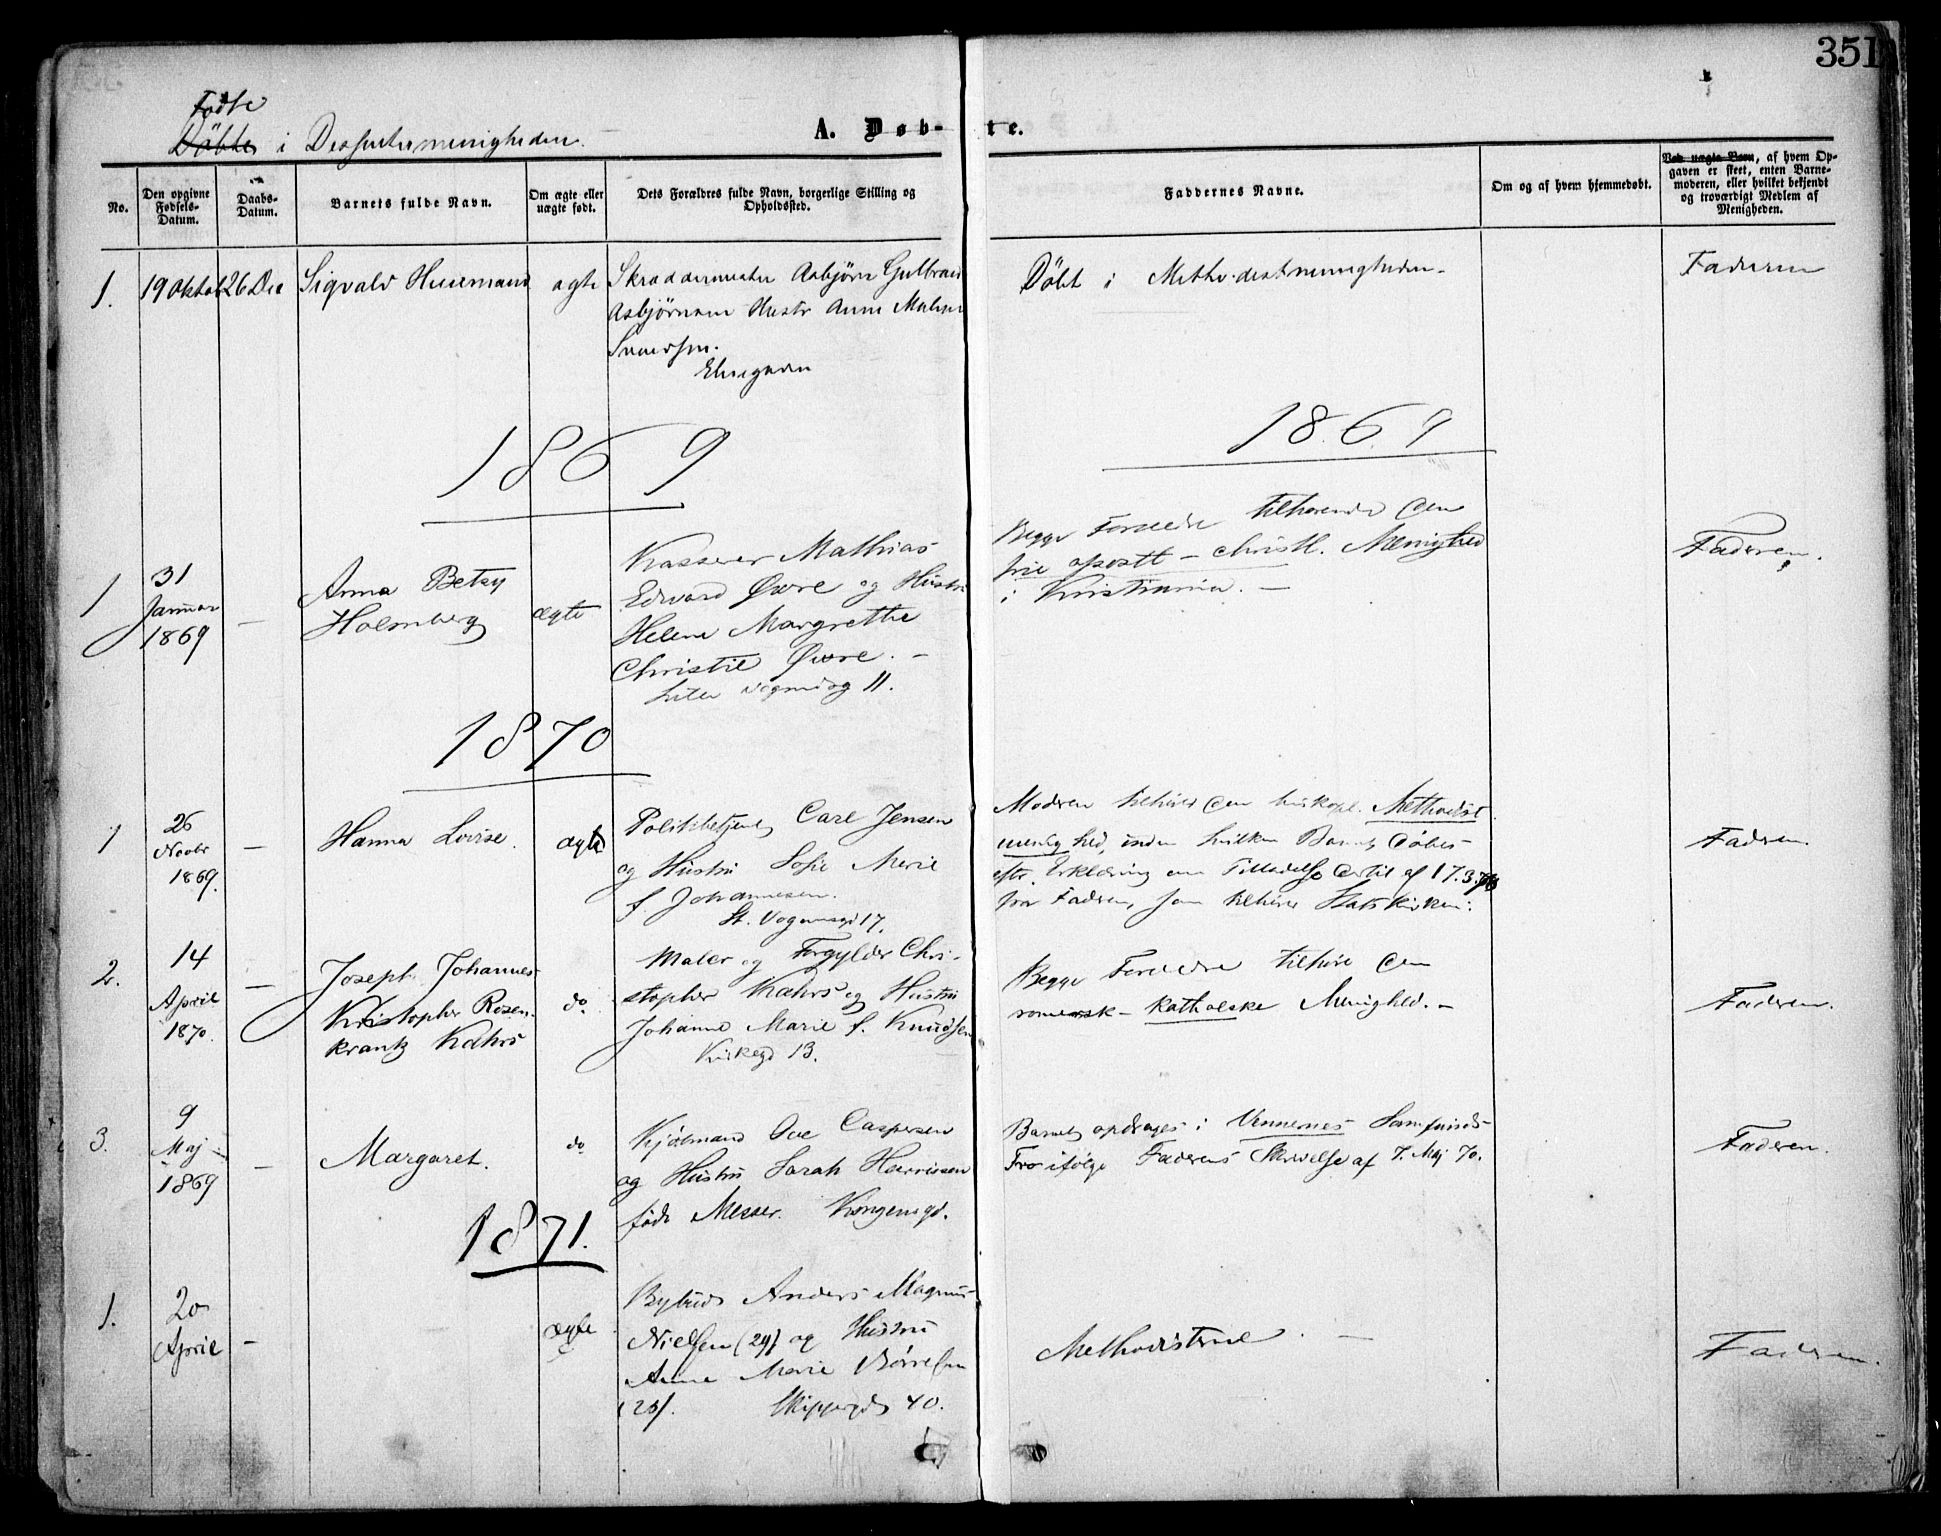 351
Fødte
Döbte i Dissentermenigheden.
A. Døb-te.
No.
Den opgivne Fødsels-Datum.
Daabs-Datum.
Barnets fulde Navn.
Om ægte eller uægte født.
Dets Forældres fulde Navn, borgerlige Stilling og Opholdssted.
Faddernes Navne.
Om og af hvem hjemmedøbt.
Ved uægte Børn, af hvem Opgaven er skeet, enten Barnemoderen, eller hvilket bekjendt og troværdigt Medlem af Menigheden.
1.
19 Oktob
26 Dec
Sigvald
ægte
Skræddermester Asbjørn Gulbrand
Asbjørnsen Hustr Anne
Døbt i Methodistmenigheden
Faderen
1869
1869
1
31
Januar
1869
—
Anna Betzy
Holmberg
ægte
Kasserer Mathias
Edvard Øvre og Hustru
Helene Margrethe
Christie Øvre. —
11.
Begge Forældre tilhørende den
frie apostl – christl. Menighed
i Kristiania. —
Faderen.
1870
1
26
Novbr
1869.
—
Hanna Lovise.
ægte
Politibetjent Carl Jensen
og Hustru Sofie Marie
f. Johannesen.
St. Vognmsgd 17.
Moderen tilhører den biskopl. Methodist
menighed, inden hvilken Barnet døbes
eftr. Erklæring om Tilladelse dertil af 17.3.70
fra Faderen, som tilhører Statskirken.
Faderen.
2.
14
April
1870.
—
Joseph Johannes
Kristopher Rosen-
krantz Kahrs
do.
Maler og Forgylder Chri-
stopher Kahrs og Hustru
Johanne Marie f. Knudsen
Kirkegd 13.
Begge Forældre tilhøre den
romersk – katholske Menighed. —
Faderen.
3.
9
Maj
1869
—
Margaret.
do
Kjøbmand Ove Caspersen
og Hustru Sarah
født Messer. Kongensgd.
Barnet opdrages i Vennenes Samfunds
Tro ifølge Faderens Skrivelse af 7. Maj 70.
Faderen.
1871.
1.
20
April
—
ægte
Bybud Anders Magnus
Nielsen (29) og Hustru
Anne Marie
Skippergd 40.
Methodisterne. —
Faderen.